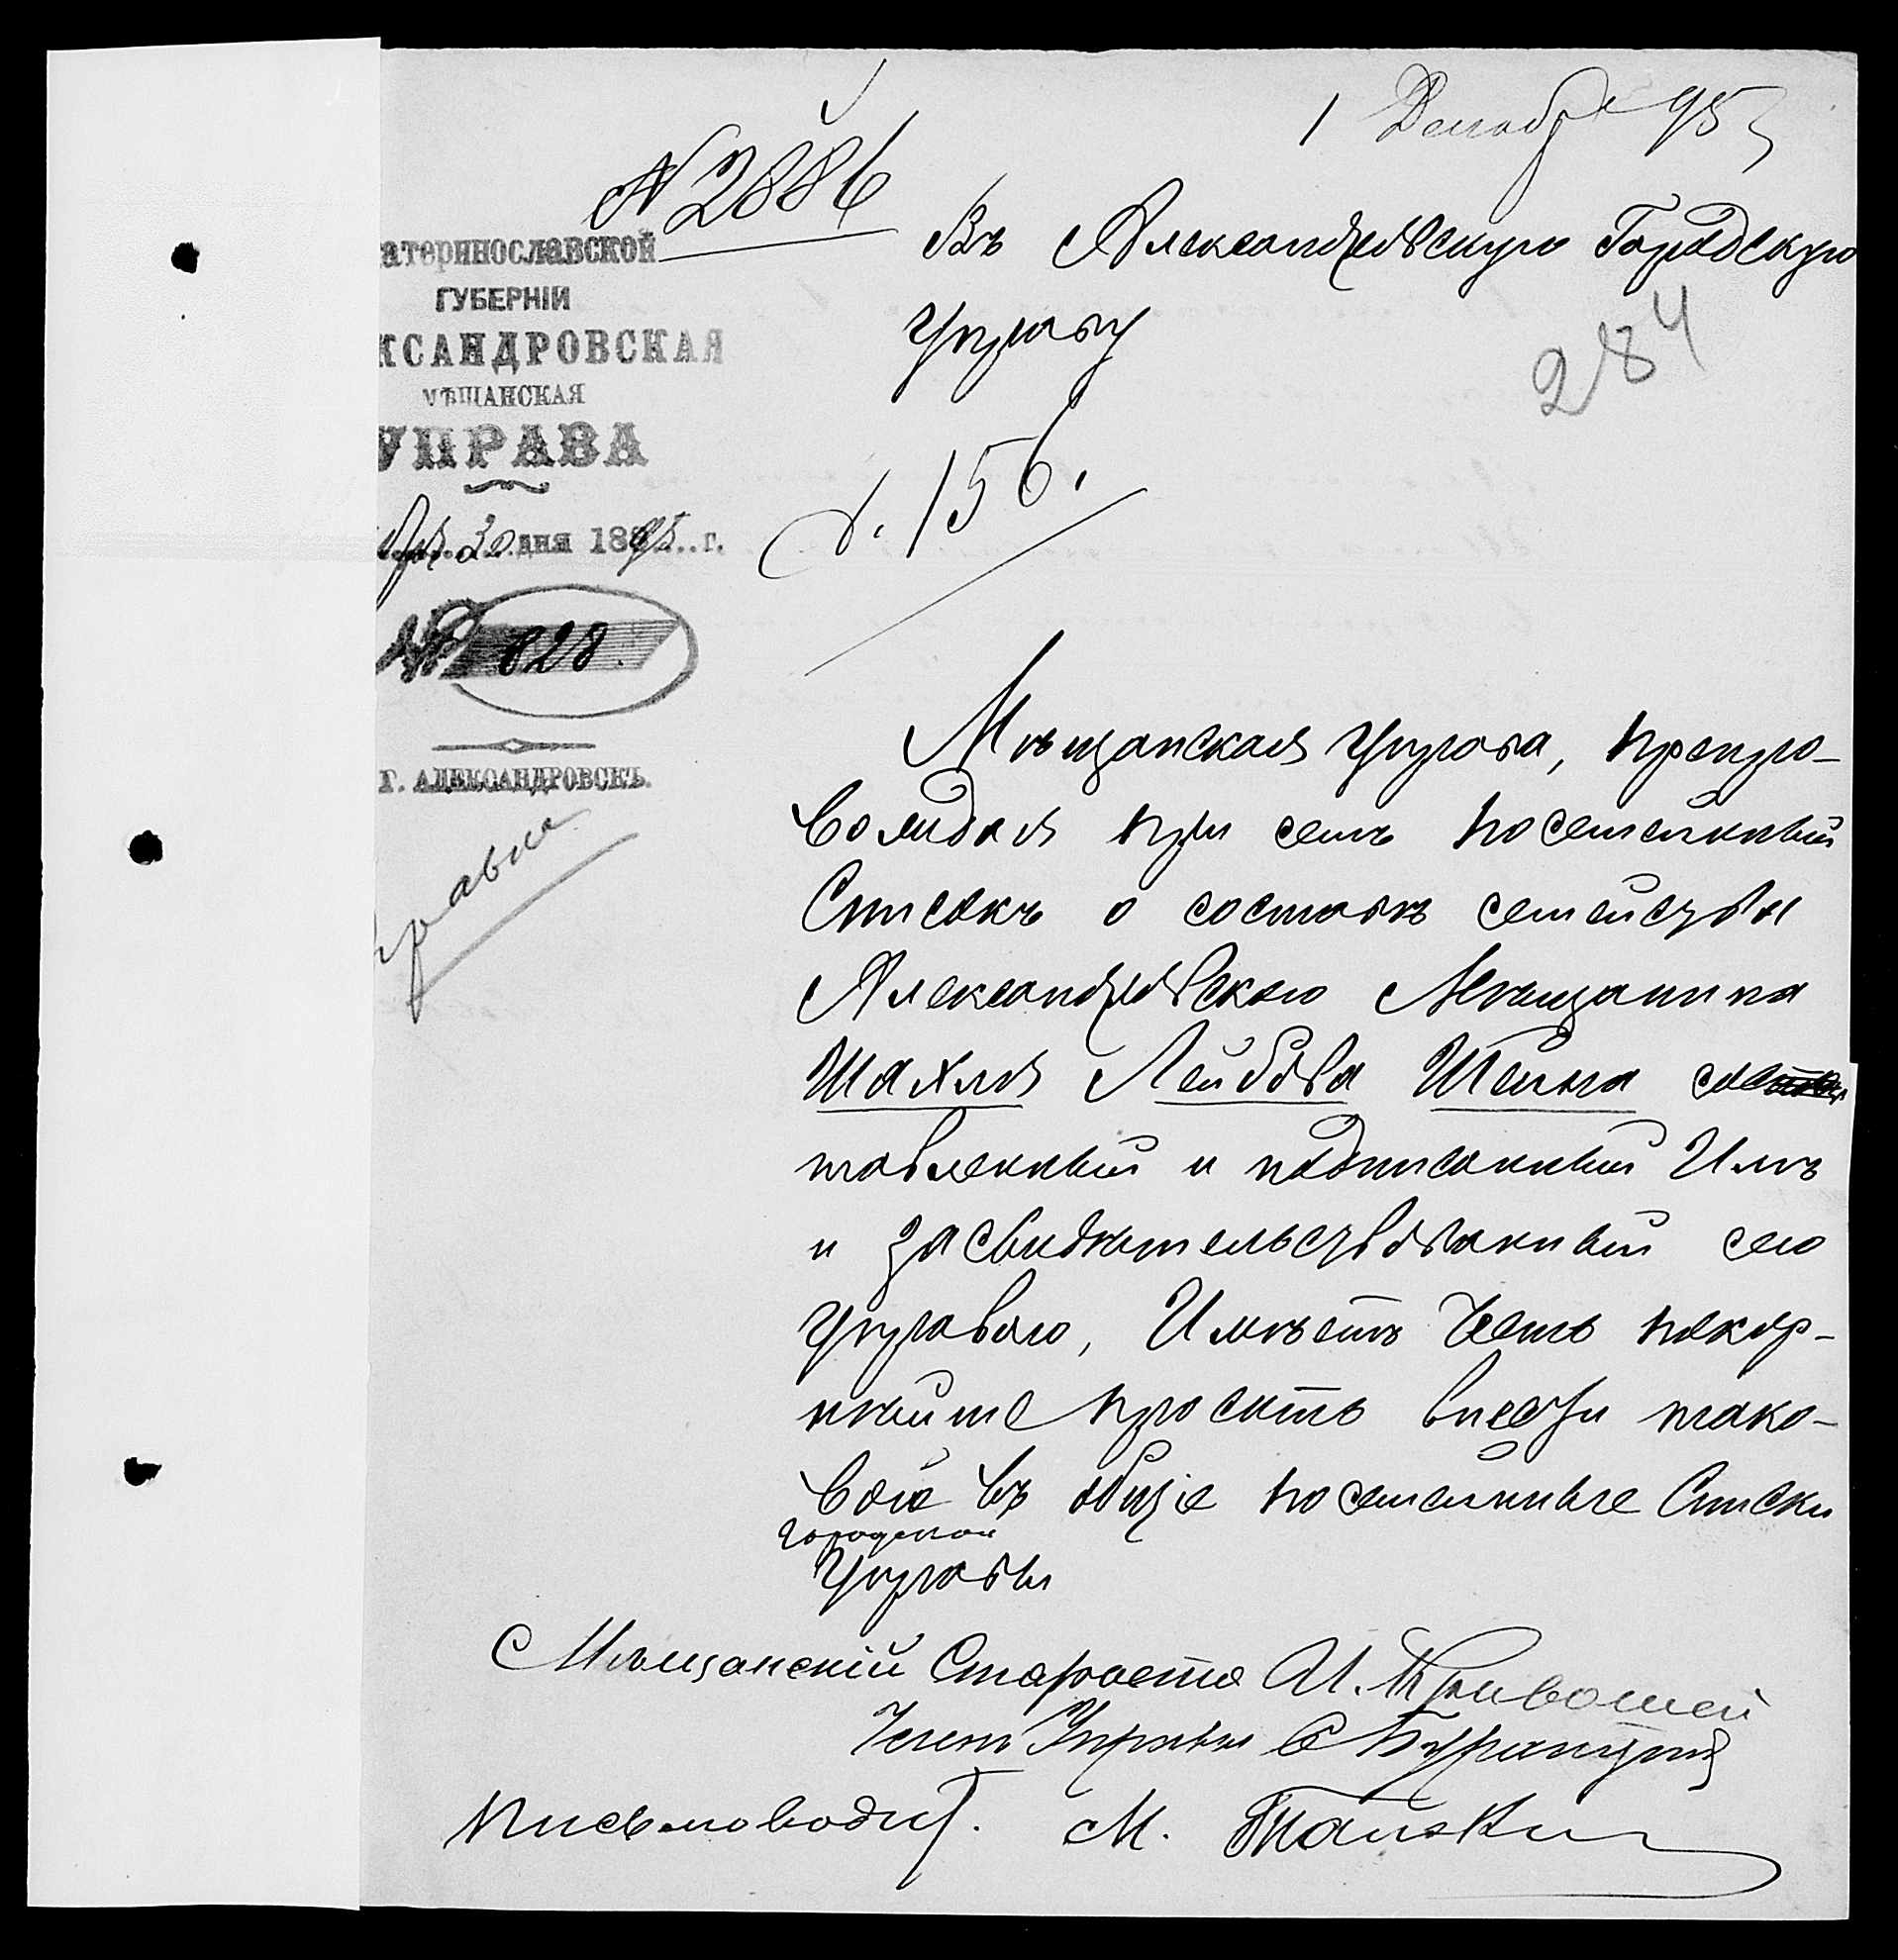 1 Декабря 95
№ 2886
атеринославской
ГУБЕРНІИ
КСАНДРОВСКАЯ
МѢЩАНСКАЯ
УПРАВА
30 дня 1895 г.
№ 828.
Г. АЛЕКСАНДРОВСКЪ.
Въ Александровскую Городскую
Управу
284
156.
Мѣщанская Управа, препро-
вождая при семъ посемейный
Списокъ о составѣ семейства
Александровскаго Мѣщанина
Шахмя Лейбова Шейна сос
тавленный и подписанный Имъ
и засвидѣтельствованный сею
Управою, Имѣетъ Честь покор-
нѣйше просить внести тако-
вой въ общіе посемейные Списки
городской
Управы
Мѣщанскій Староста И. Кривошей
Членъ Управы С
Письмоводит. М.